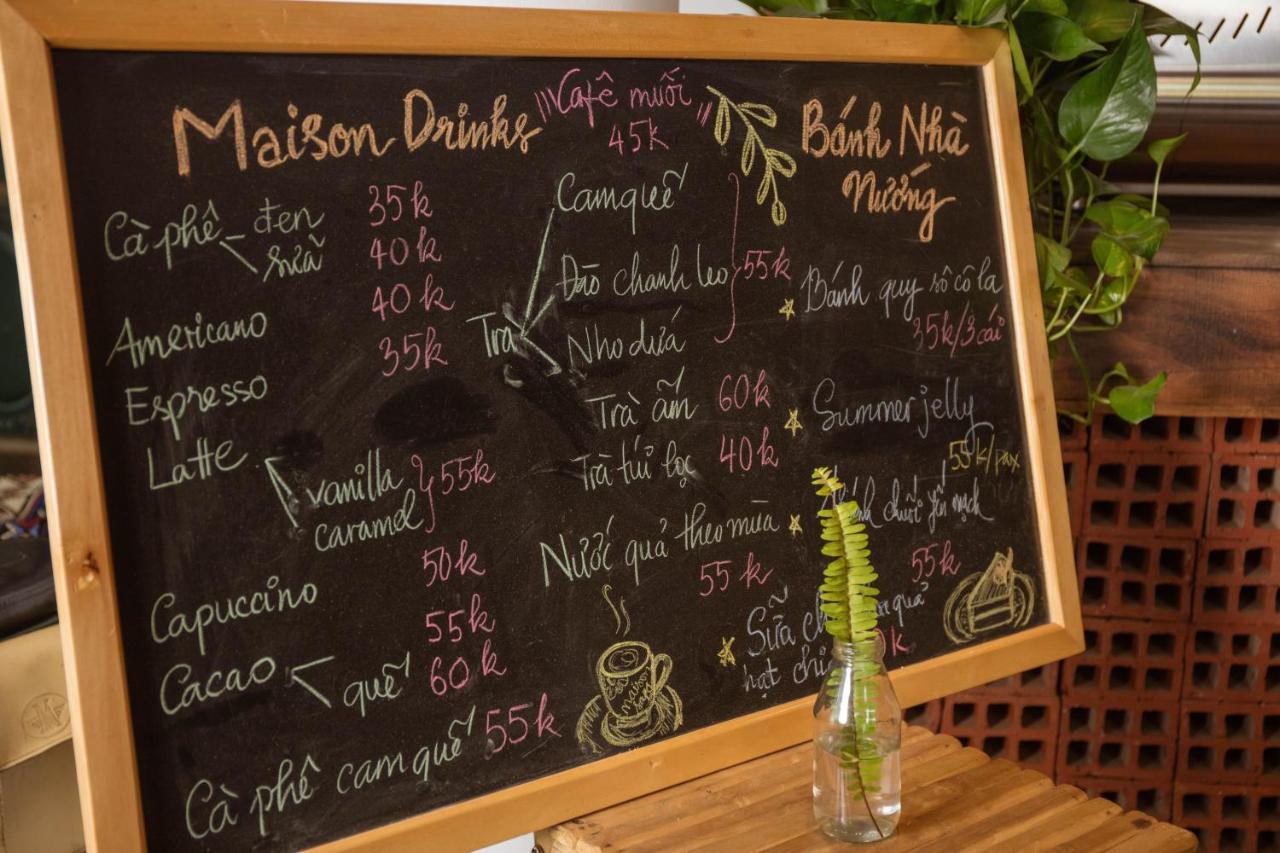 Maison Drinks
Cà phê đen 35k
sữa 40k
Americano 40k
Espresso 35k
Latte
vanilla
caramel 55k
Capuccino 50k
Cacao 55k
quế 60k
Cà phê cam quế 55k
"Café muối"
45k
Trà
Cam quế
Đào chanh leo 55k
Nho dứa
Trà ấm 60k
Trà túi lọc 40k
Nước quả theo mùa
55k
maison
Bánh Nhà
Nướng
Bánh quy sô cô la
35k/3 cái
Summer jelly
55k/pax
chuối yến mạch
55k
Sữa quả
hạt
k